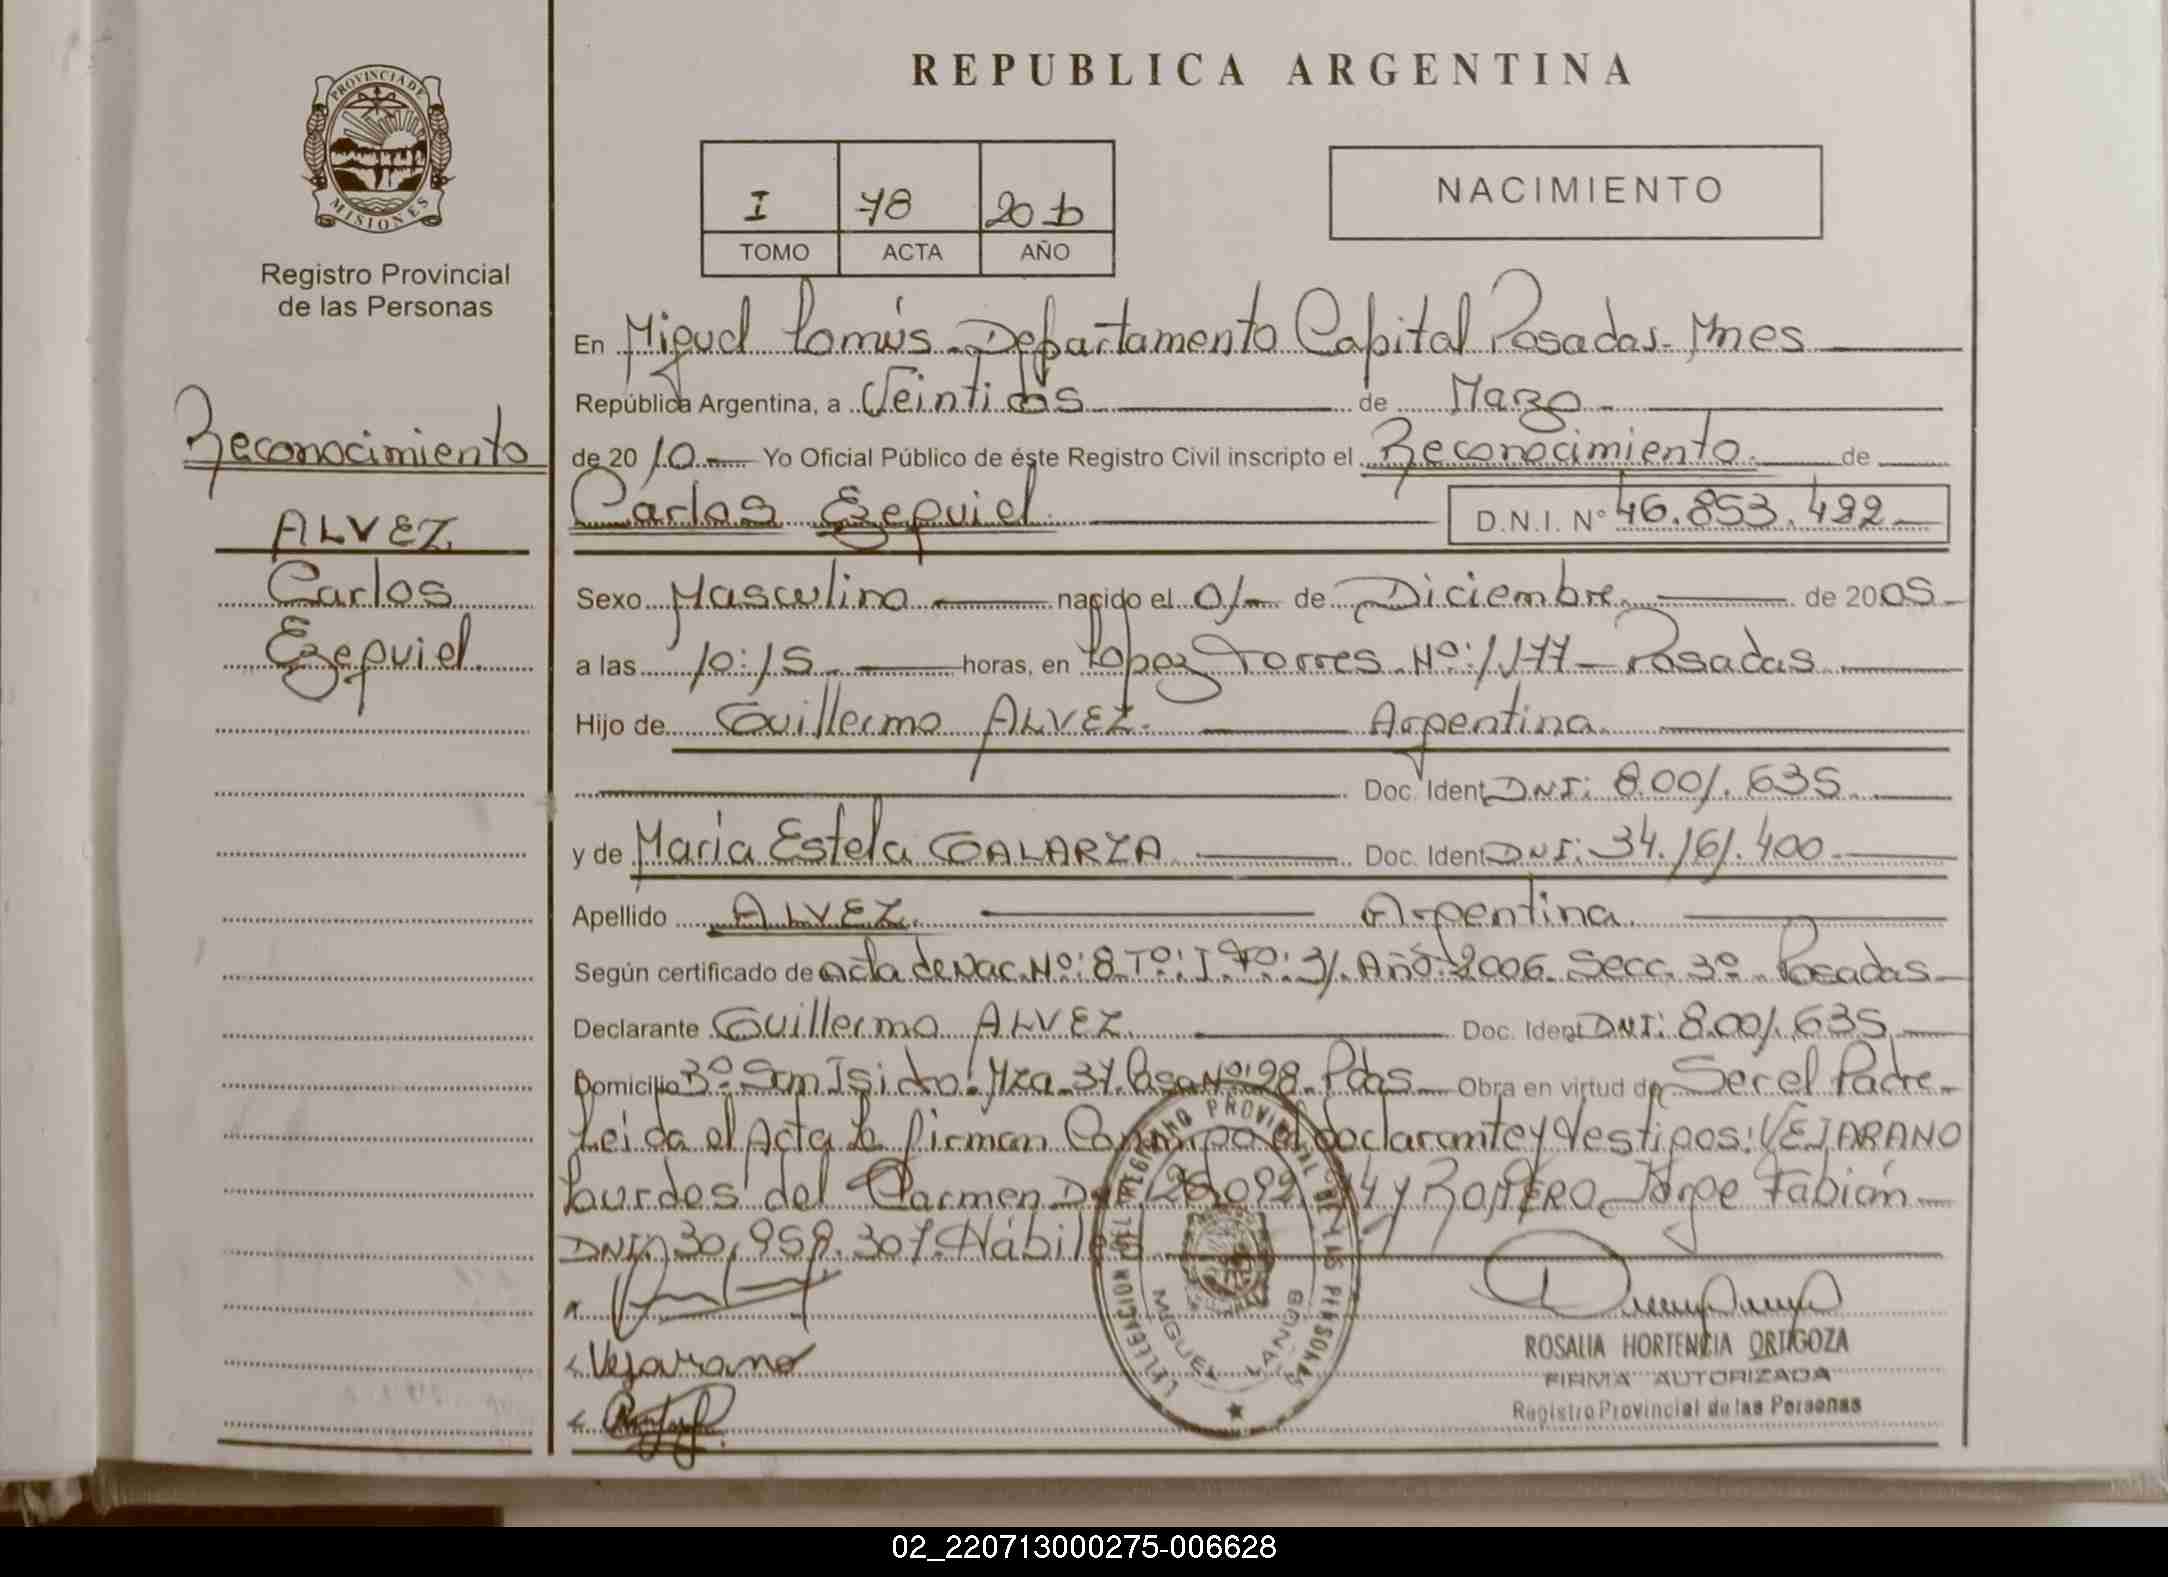 PROVINCIA DE
MISIONES
Registro Provincial
de las Personas
REPUBLICA ARGENTINA
I 78 2010
TOMO ACTA AÑO
NACIMIENTO
En Miguel Lanús - Departamento Capital Posadas - Mnes
República Argentina, a Veintidós de Marzo
de 2010 Yo Oficial Público de éste Registro Civil inscripto el Reconocimiento de
Carlos Ezequiel D.N.I. Nº 46.853.492
Reconocimiento
ALVEZ
Carlos
Ezequiel
Sexo Masculino nacido el 01 de Diciembre de 2005
a las 10:15 horas, en López Torres Nº: 1177 - Posadas
Hijo de Guillermo ALVEZ Argentina
Doc. Ident DNI: 8.001.635
y de María Estela GALARZA Doc. Ident DNI: 34.161.400
Apellido ALVEZ Argentina
Según certificado de acta de Nac. Nº: 8 Tº: I Fº: 31 Año: 2006 Secc. 3º Posadas
Declarante Guillermo ALVEZ Doc. Ident DNI: 8.001.635
Domicilio Bº San Isidro: Mza 37 Casa Nº: 28 - Pdas Obra en virtud de Ser el Padre
Leida el Acta la firman Conmigo el declarante y testigos: VEJARANO
Lourdes del Carmen y ROMERO Jorge Fabián
DNI 30.959.307. Hábiles
Vejarano
REGISTRO PROVINCIAL DE LAS PERSONAS
DELEGACION
MIGUEL LANUS
ROSALIA HORTENCIA ORTIGOZA
FIRMA AUTORIZADA
Registro Provincial de las Personas
02_220713000275-006628